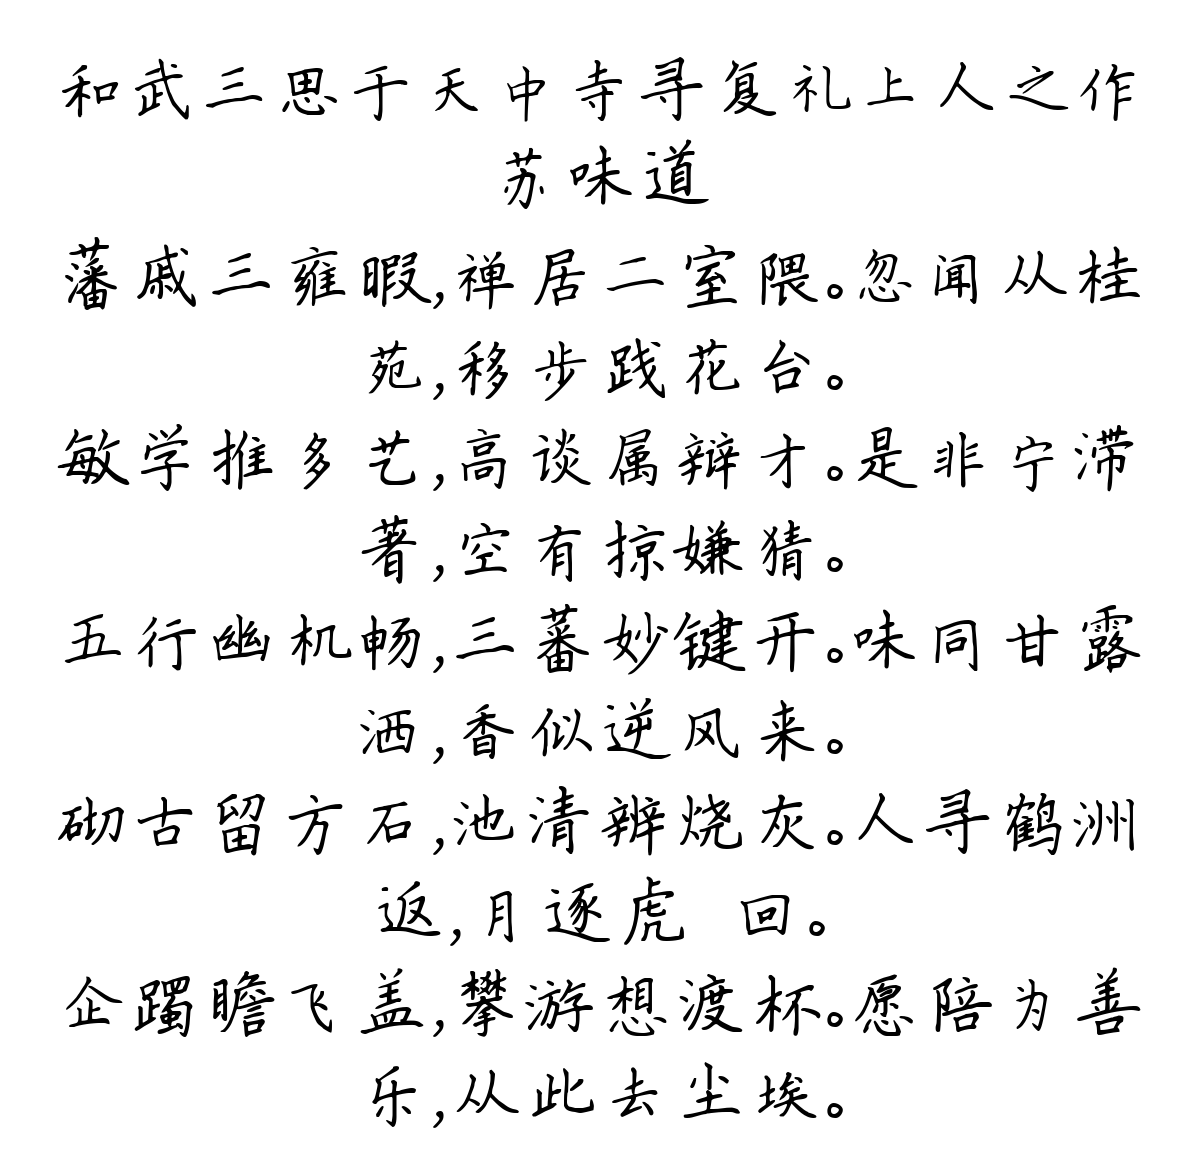 和武三思于天中寺寻复礼上人之作
苏味道
藩戚三雍暇,禅居二室隈。忽闻从桂
苑,移步践花台。
敏学推多艺,高谈属辩才。是非宁滞
著,空有掠嫌猜。
五行幽机畅,三蕃妙键开。味同甘露
洒,香似逆风来。
砌古留方石,池清辨烧灰。人寻鹤洲
返,月逐虎 回。
企躅瞻飞盖,攀游想渡杯。愿陪为善
乐,从此去尘埃。